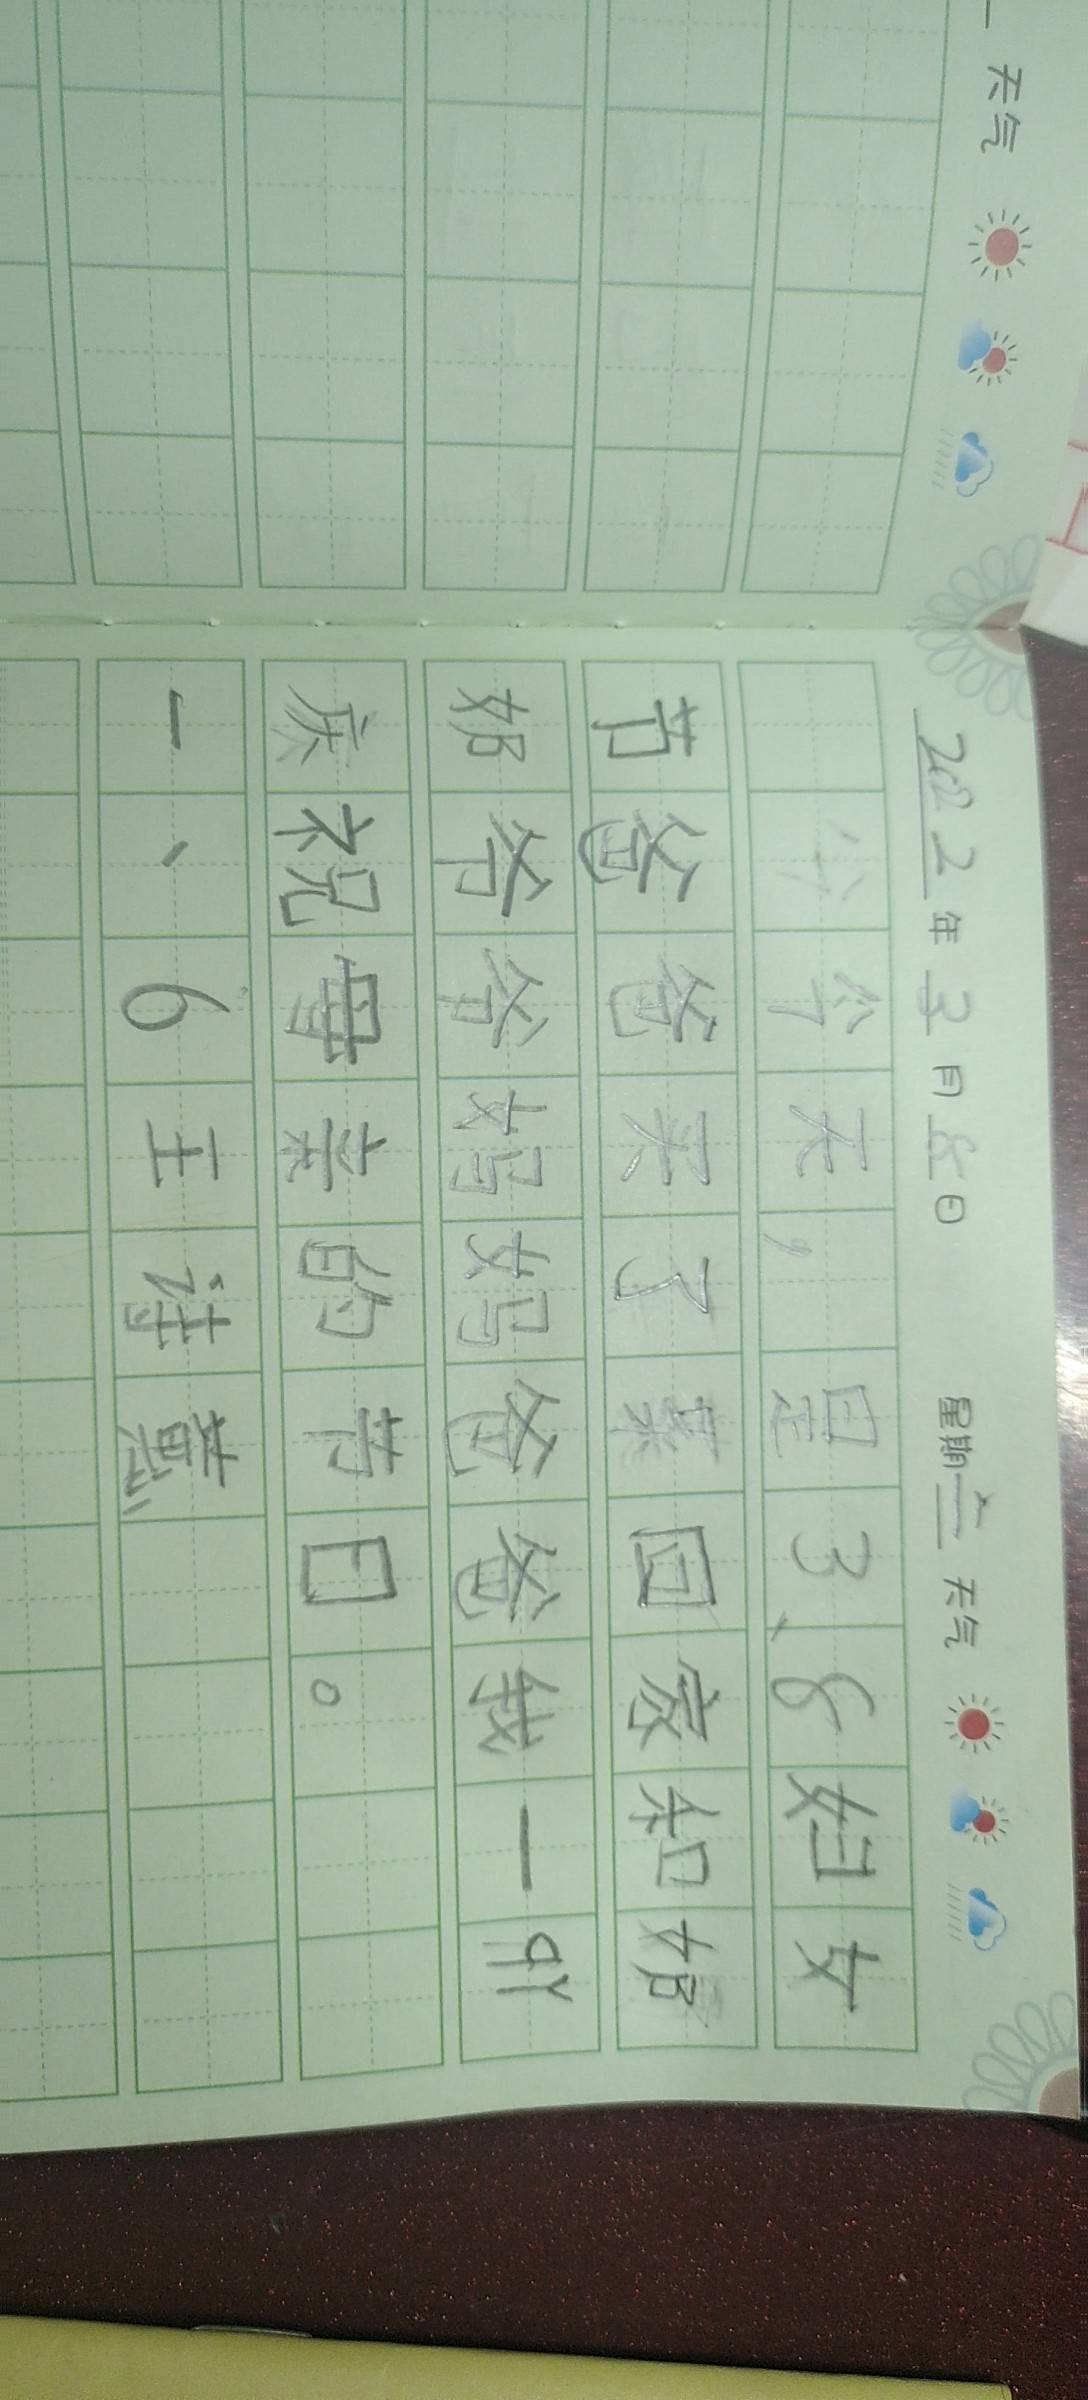 天气
2022年3月8日 星期二 天气
今天，是3、8妇女
节爸爸买了菜回家和奶
奶爷爷妈妈爸爸我一起
庆祝母亲的节日。
一、6王诗慧